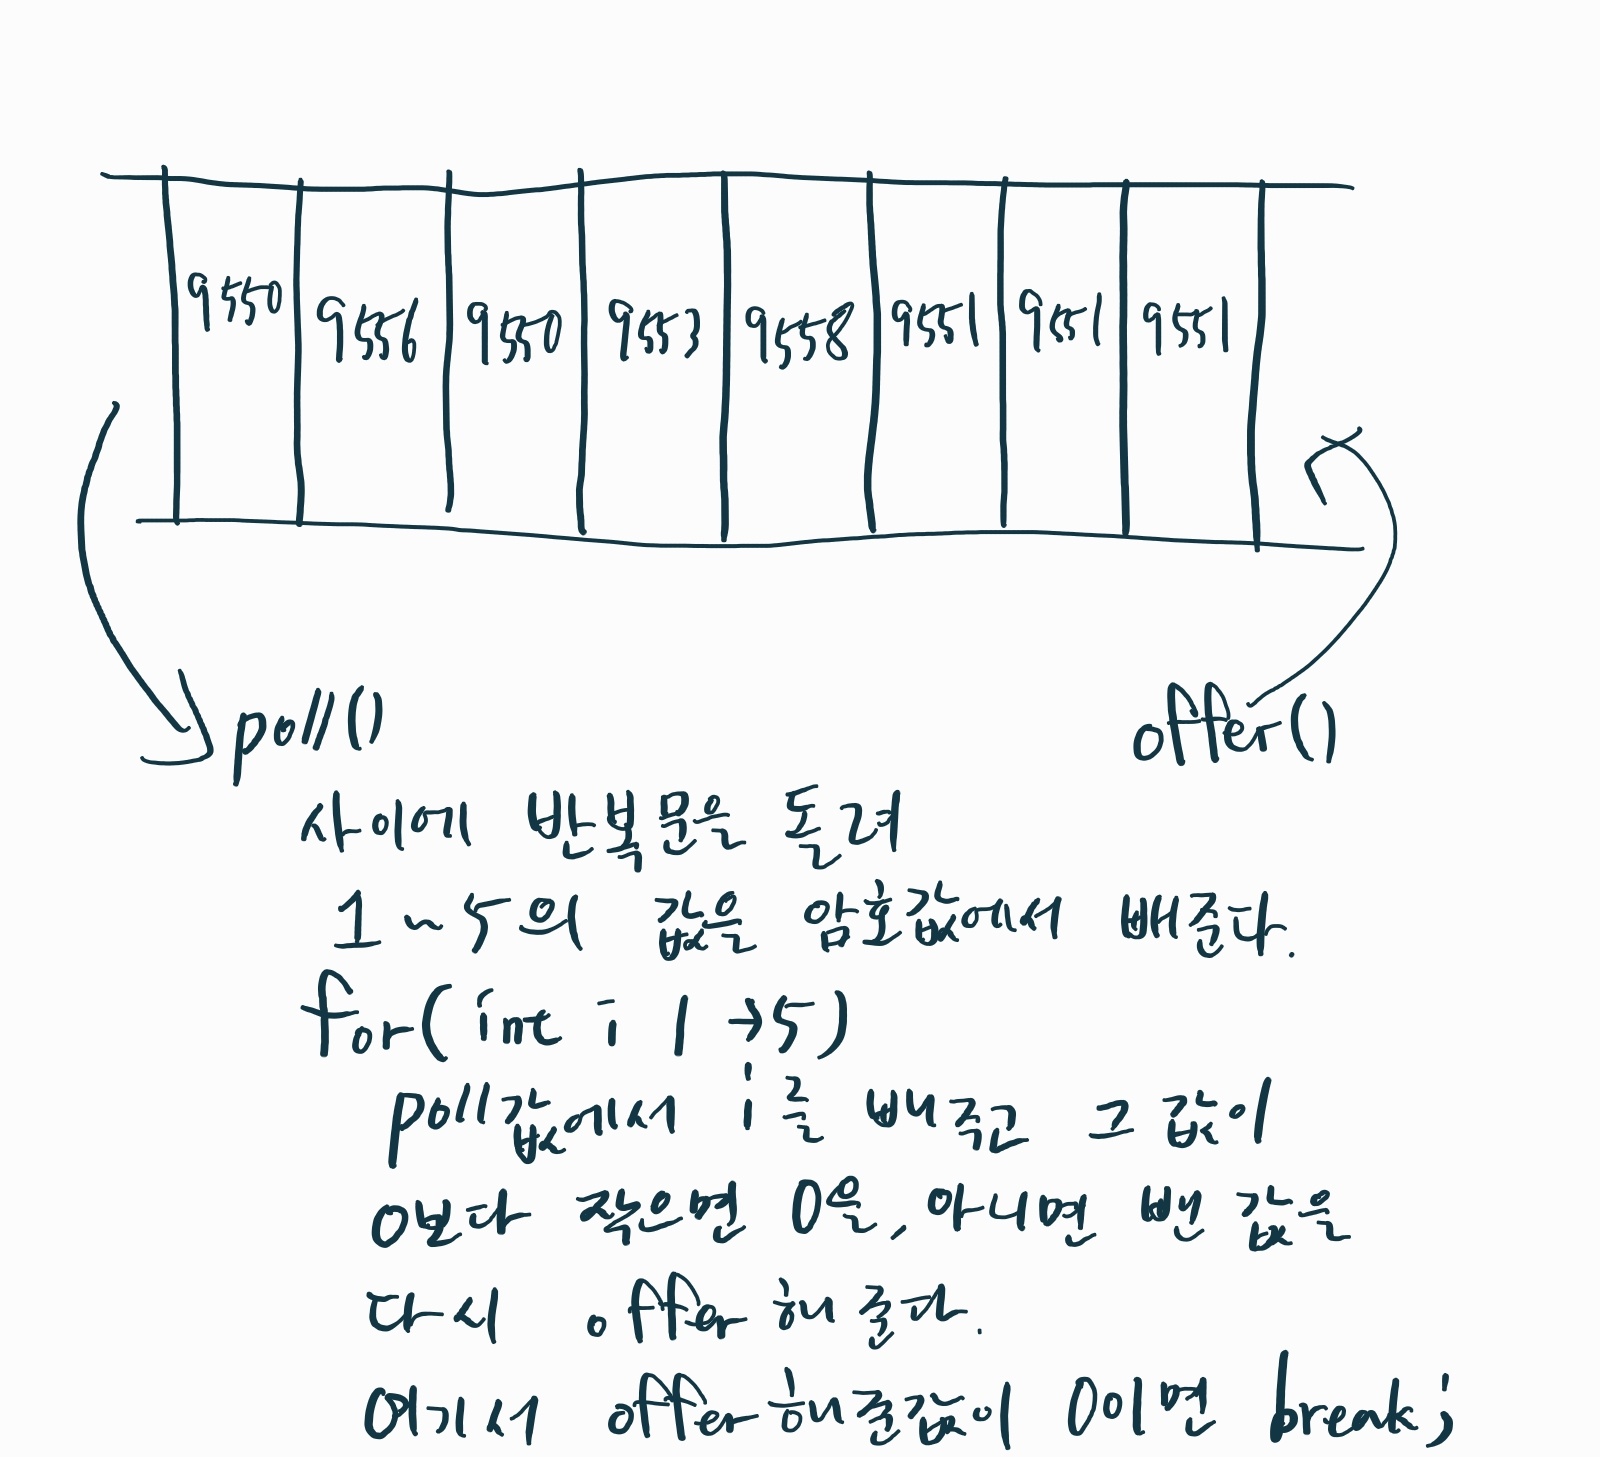 9550 9556 9550 9553 9558 9551 9551 9551
poll() offer()
사이에 반복문은 돌려
1~5의 값은 암호값에서 빼준다.
for(int i 1 →5)
poll값에서 i를 빼주고 그 값이
0보다 작으면 0을, 아니면 뺀 값을
다시 offer해준다.
여기서 offer해준값이 0이면 break;